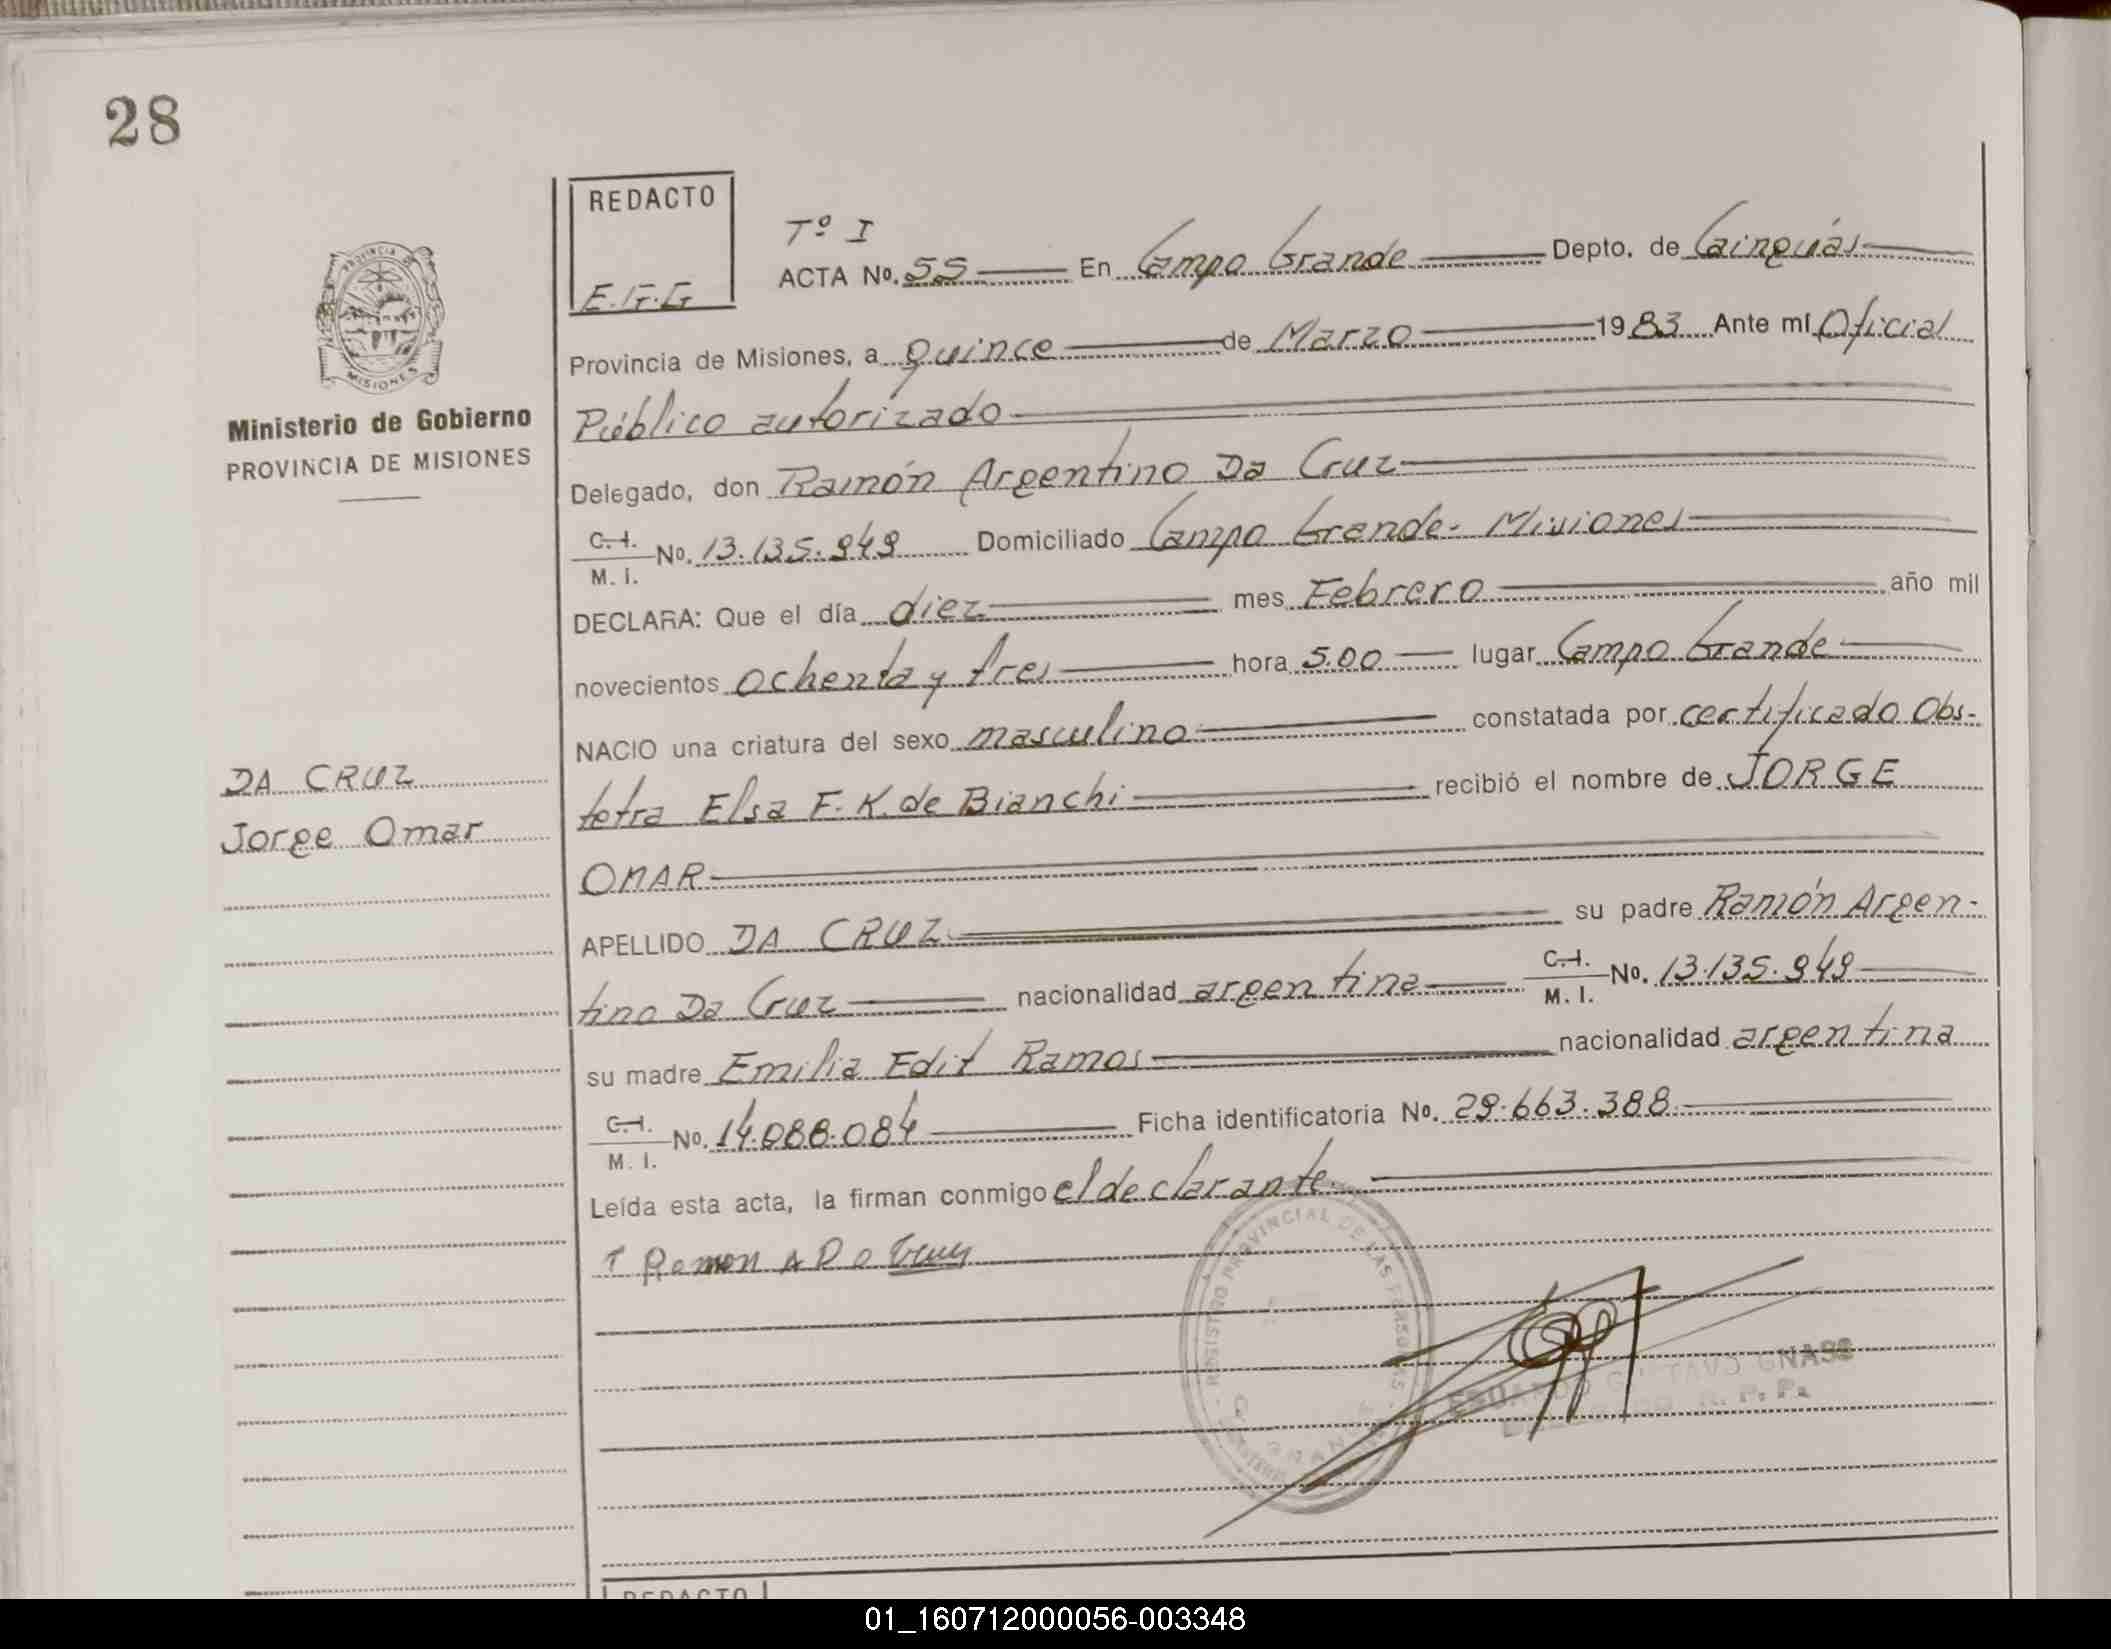 28
REDACTO
E.G.G
Tº I
ACTA Nº. 55 En Campo Grande Depto. de Cainguás
Provincia de Misiones, a quince de Marzo 1983 Ante mí Oficial
Público autorizado
Delegado, don Ramón Argentino Da Cruz
C.I. M.I. Nº. 13.135.949 Domiciliado Campo Grande - Misiones
DECLARA: Que el día diez mes Febrero año mil
novecientos ochenta y tres hora 5.00 lugar Campo Grande
NACIO una criatura del sexo masculino constatada por certificado Obs-
tetra Elsa F. K. de Bianchi recibió el nombre de JORGE
OMAR
APELLIDO DA CRUZ su padre Ramón Argen-
tino Da Cruz nacionalidad argentina C.I. M.I. Nº. 13.135.949
su madre Emilia Edit Ramos nacionalidad argentina
C.I. M.I. Nº. 14.088.084 Ficha identificatoria Nº. 29.663.388
Leída esta acta, la firman conmigo el declarante.
Ramon A Da Cruz
PROVINCIA DE
MISIONES
Ministerio de Gobierno
PROVINCIA DE MISIONES
DA CRUZ
Jorge Omar
REGISTRO PROVINCIAL DE LAS PERSONAS
GRANDE
EDUARDO GUSTAVO GNASS
R. P. P.
REDACTO
01_160712000056-003348